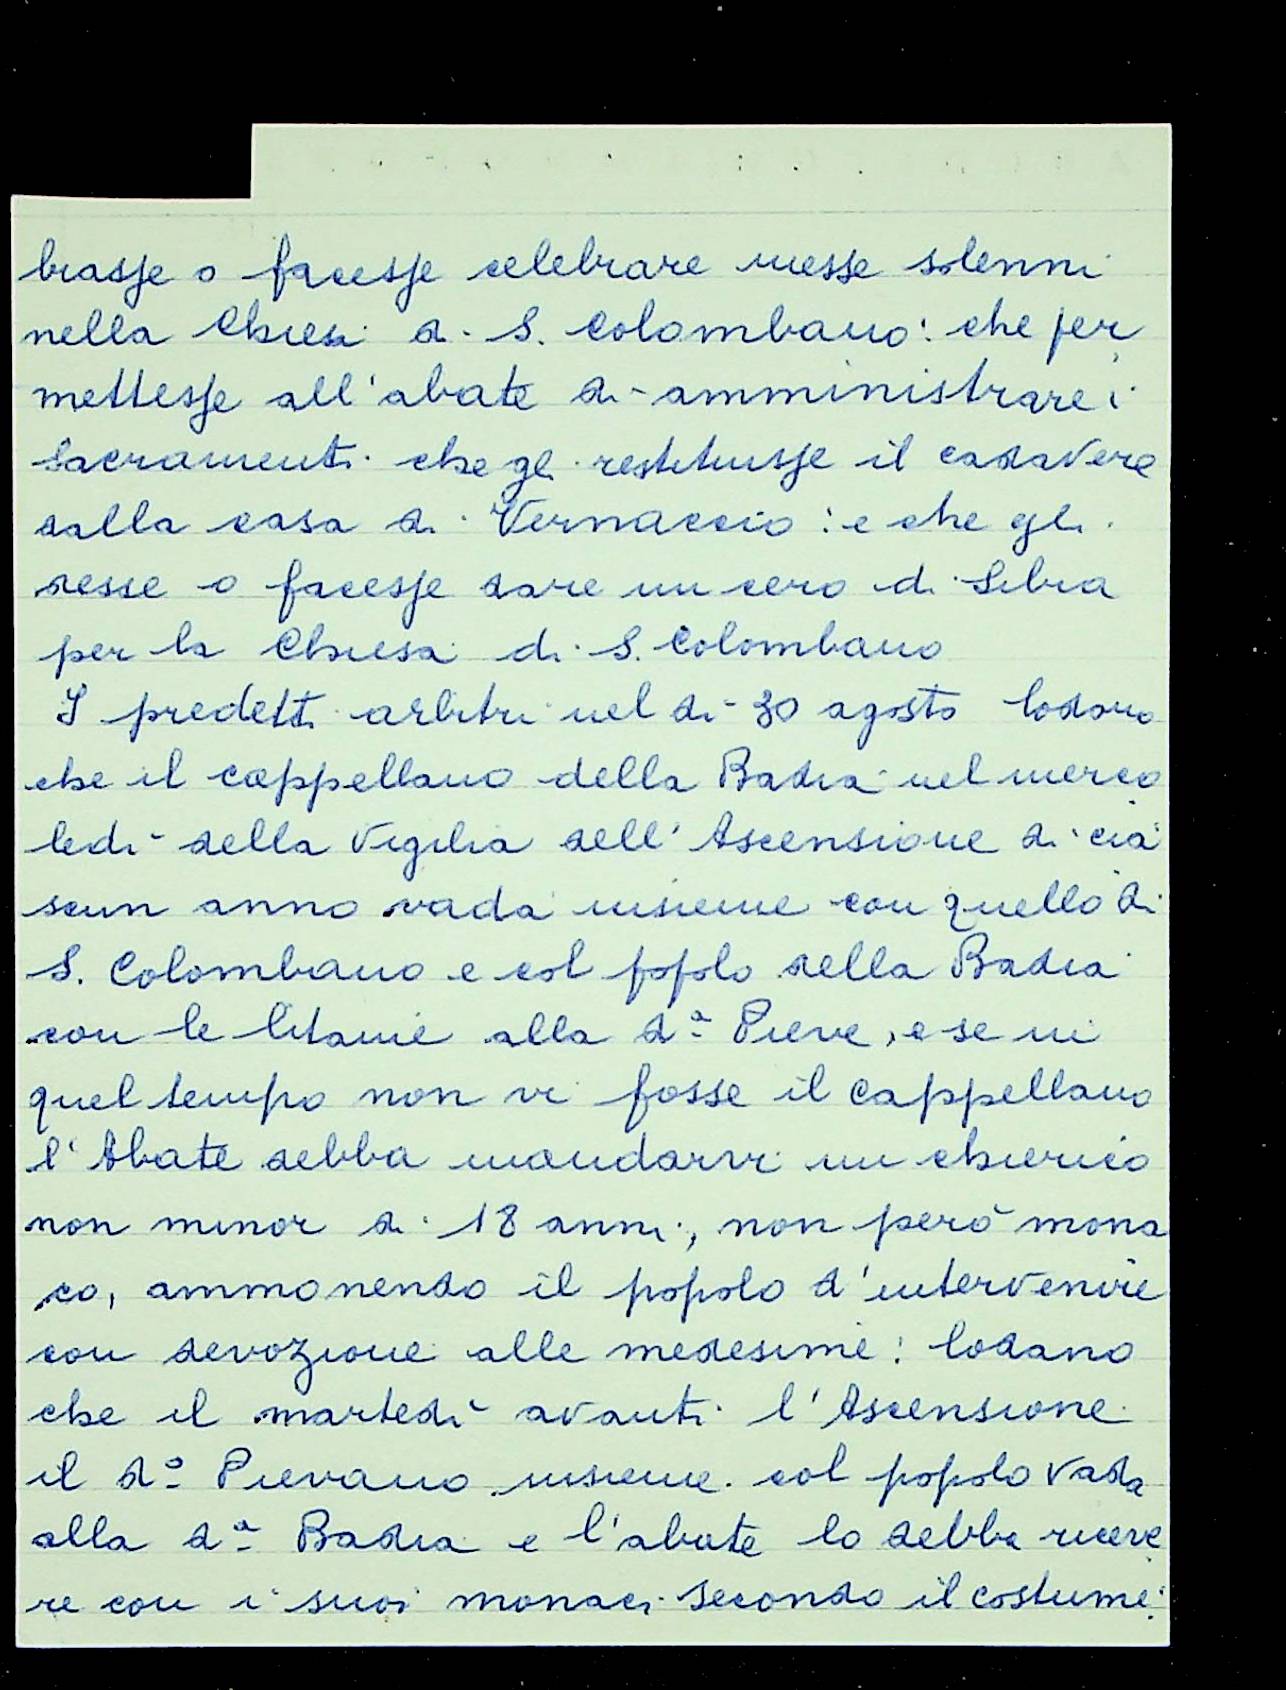 brasse o facesse celebrare messe solenni
nella Chiesa di S. Colombano: che per
mettesse all'abate di amministrare i
sacramenti che gli restituisse il cadavere
dalla casa di Vernaccio: e che gli
desse o facesse dare un cero di libra
per la Chiesa di S. Colombano
I predetti arbitri nel dì 30 agosto lodaro
che il cappellano della Badia nel merco
ledì della Vigilia dell'Ascensione di cia
scun anno vada insieme con quello di
S. Colombano e col popolo della Badia
con le litanie alla d.ª Pieve, e se in
quel tempo non vi fosse il cappellano
l'Abate debba mandarvi un chierico
non minor di 18 anni, non però mona
co, ammonendo il popolo d'intervenire
con devozione alle medesime: lodano
che il martedì avanti l'Ascensione
il d.º Pievano insieme col popolo vada
alla d.ª Badia e l'abate lo debba riceve
re con i suoi monaci secondo il costume: